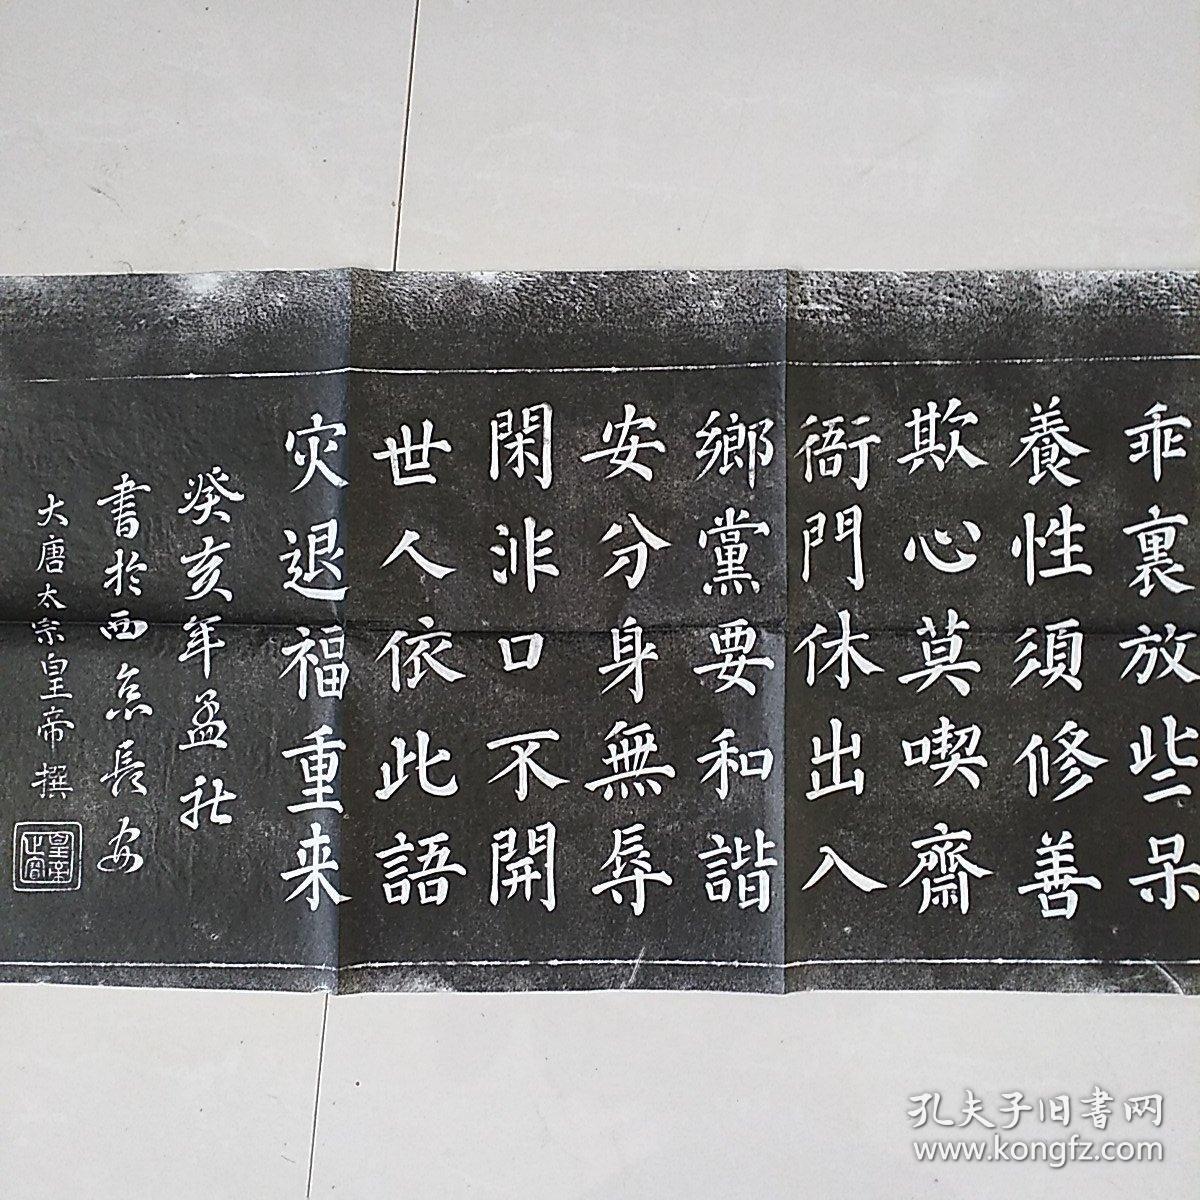 乖裏放些呆
養性須修善
欺心莫喫齋
衙門休出入
鄉黨要和諧
安分身無辱
閑非口不開
世人依此語
灾退福重来
癸亥年孟秋
書於西京長安
大唐太宗皇帝撰
孔夫子旧書网
www.kongfz.com